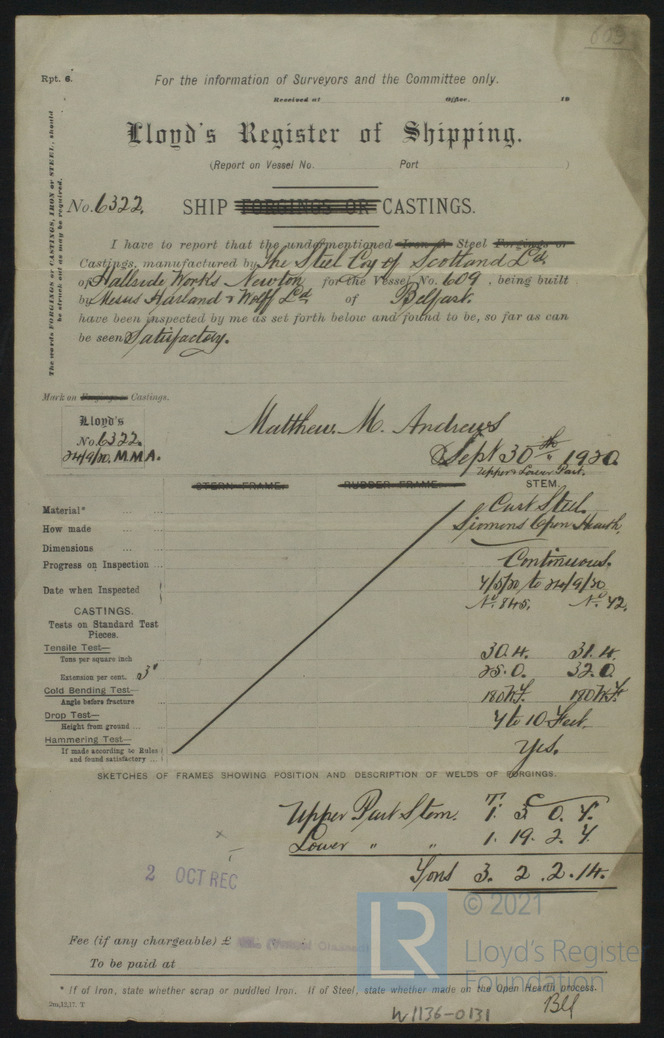 603
Rpt. 6.
For the information of Surveyors and the Committee only.
Received at Office, 19
Lloyd's Register of Shipping.
(Report on Vessel No. Port )
The words FORGINGS or CASTINGS, IRON or STEEL, should be struck out as may be required.
No. 6322. SHIP FORGINGS OR CASTINGS.
I have to report that the undermentioned Iron or Steel Forgings or
Castings, manufactured by The Steel Coy of Scotland Ld.
of Hallside Works Newton for the Vessel No. 609, being built
by Messrs Harland & Wolff Ld. of Belfast.
have been inspected by me as set forth below and found to be, so far as can
be seen Satisfactory.
Mark on Forgings or Castings.
Lloyd's
No. 6322.
24/9/20. M.M.A.
Matthew. M. Andrews
Sept 30th 1920.
Upper & Lower Part.
STERN FRAME. RUDDER FRAME. STEM.
Material* Cast Steel.
How made Siemens Open Hearth.
Dimensions
Progress on Inspection Continuous.
Date when Inspected 4/5/20 to 24/9/20
CASTINGS. No. 848. No. 42.
Tests on Standard Test
Pieces.
Tensile Test—
Tons per square inch 30.4. 31.4.
Extension per cent. 3" 28.0. 32.0
Cold Bending Test—
Angle before fracture
Drop Test—
Height from ground ... 7 to 10 Feet.
Hammering Test—
If made according to Rules
and found satisfactory ... Yes.
SKETCHES OF FRAMES SHOWING POSITION AND DESCRIPTION OF WELDS OF FORGINGS.
T. C
Upper Part Stem. 1. 3. 0. 7.
Lower " " 1. 19. 2. 7.
Tons 3. 2. 2. 14.
2 OCT REC
Fee (if any chargeable) £
To be paid at
* If of Iron, state whether scrap or puddled Iron. If of Steel, state whether made on the Open Hearth process.
2m,12,17. T
W1136-0131
LR
© 2021
Lloyd's Register
Foundation